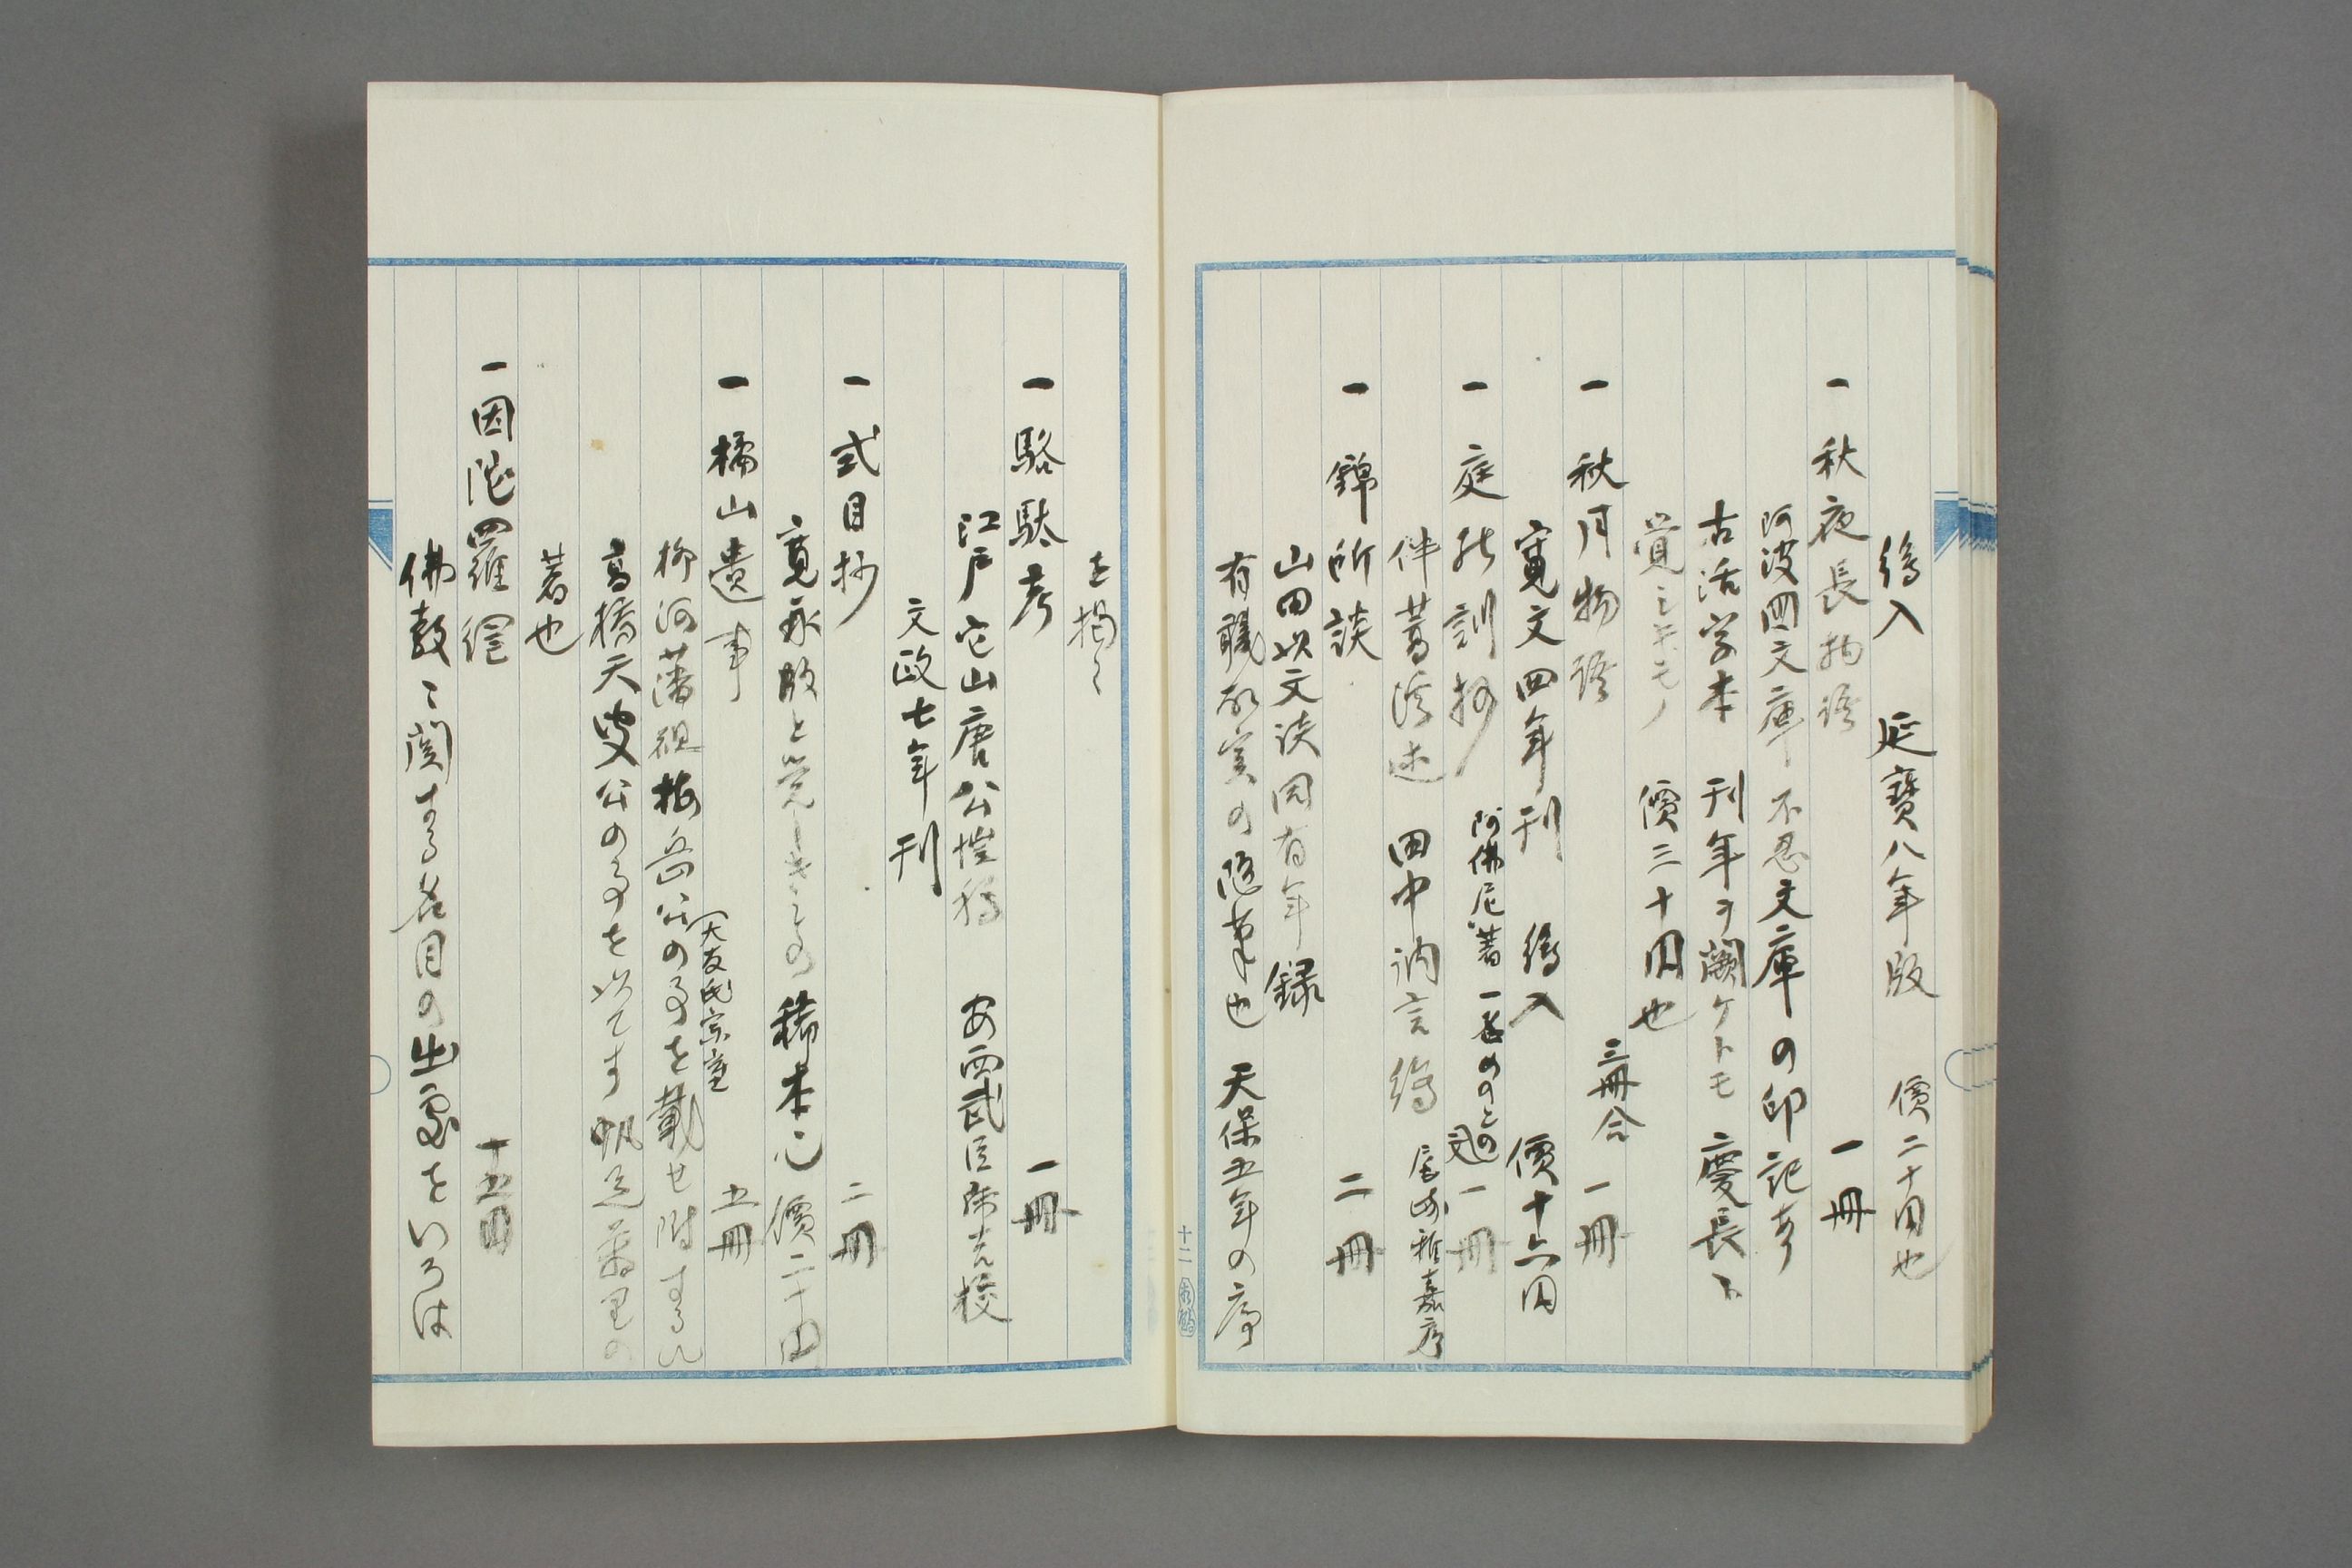 繪入 延寶八年版 價二十円也
一 秋夜長物語 一冊
阿波国文庫 不忍文庫の印記あり
古活字本 刊年ヲ闕ケトモ慶長下
覚シキモノ 價三十円也
一 秋月物語 三冊合 一冊
寛文四年刊 繪入 價十六円
一 庭の訓抄 阿佛尼著 一名めのとの文 一冊
伴蒿蹊述 田中訥言繪 尾崎雅嘉序
一 錦所談 二冊
山田以文談 同有年録
有職故実の随筆也 天保五年の序
十二
を掲く
一 駱駄考 一冊
江戸 它山唐公愷稿 安西武臣 校
文政七年刊
一 式目抄 二冊
寛永版と覚しきもの 稀本也 價二十円
一 橘山遺事 五冊
(大友氏宗室
柳河藩祖梅岳公の事を載せ附するに
高橋天叟公の事を以てす 帆足萬里の
著也
一 因陀羅網 十五円
佛教ニ関する名目の出處をいろは